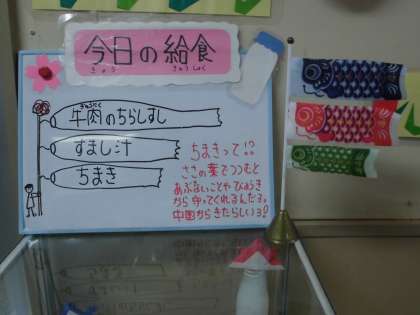 今日の給食
きょう きゅうしょく
ぎゅうにく
牛肉のちらしずし
すまし汁
ちまき
ちまきって!?
ささの葉でつつむと
あぶないことやびょうき
から守ってくれるんだよ。
中国からきたらしいよ!